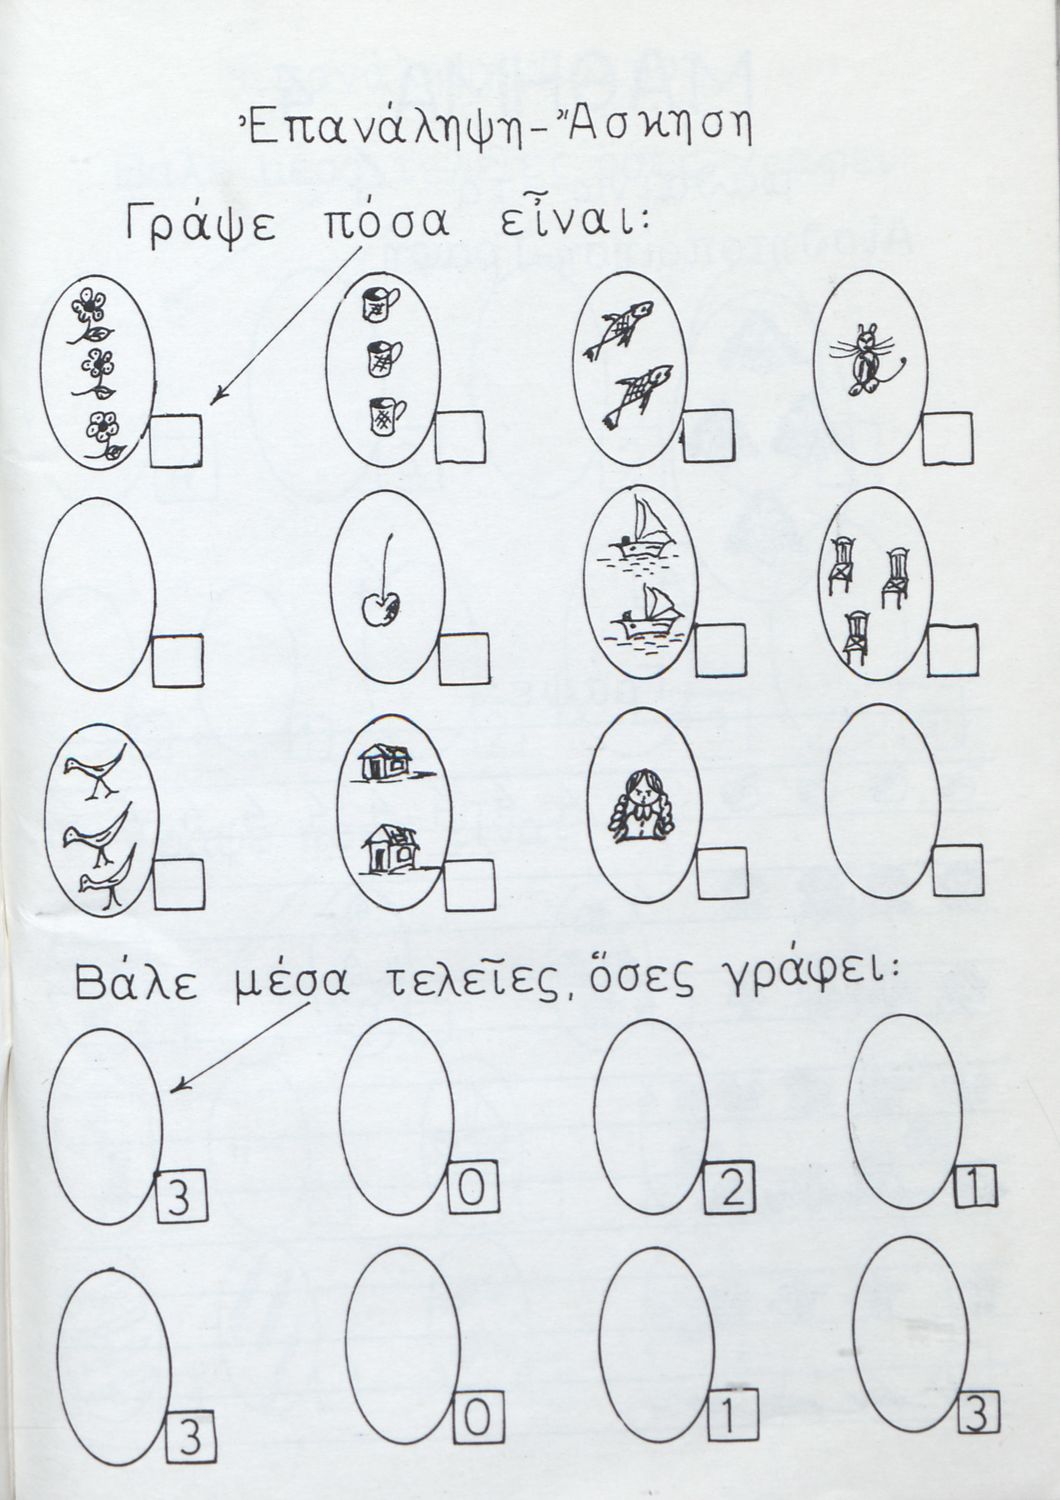 Ἐπανάληψη-Ἄσκηση
Γράψε πόσα εἶναι:
Βάλε μέσα τελεῖες, ὅσες γράφει:
3 0 2 1
3 0 1 3